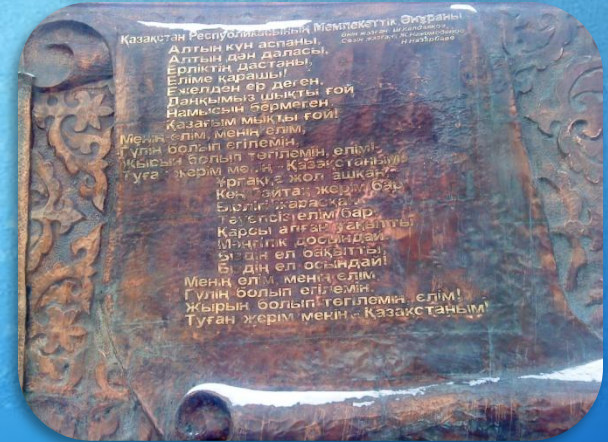 Қазақстан Республикасының Мемлекеттік Әнұраны
Әнін жазған: Ш.Қалдаяқов,
Сөзін жазған: Ж.Нәжімеденов,
Н.Назарбаев
Алтын күн аспаны,
Алтын дән даласы,
Ерліктің дастаны,
Еліме қарашы!
Ежелден ер деген,
Даңқымыз шықты ғой
Намысын бермеген,
Қазағым мықты ғой!
Менің елім, менің елім,
Гүлің болып егілемін,
Жырың болып төгілемін, елім!
Туған жерім менің - Қазақстаным!
Ұрпаққа жол ашқан,
Кең байтақ жерім бар
Бірлігі жарасқан,
Тәуелсіз елім бар.
Қарсы алған уақытты
Мәңгілік досындай
Біздің ел бақытты,
Біздің ел осындай!
Менің елім, менің елім
Гүлің болып егілемін.
Жырың болып төгілемін, елім!
Туған жерім менің - Қазақстаным!